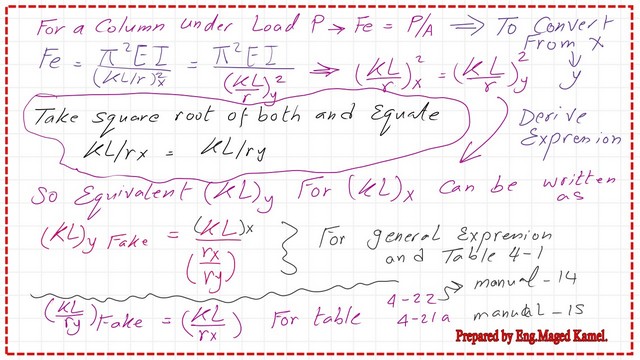 For a Column under Load P → Fe = P/A ⟹ To Convert From x ↓ y
Fe = π²EI/(KL/r)²x = π²EI/(KL/r)²y ⟹ (KL/r)²x = (KL/r)²y
Take square root of both and Equate
KL/rx = KL/ry
Derive
Exprenion
So Equivalent (KL)y For (KL)x can be written
as
(KL)y Fake = (KL)x/(rx/ry) } For general Exprenion
and Table 4-1
manual-14
(KL/ry)Fake = (KL/rx) For table 4-22
4-21a manual-15
Prepared by Eng.Maged Kamel.